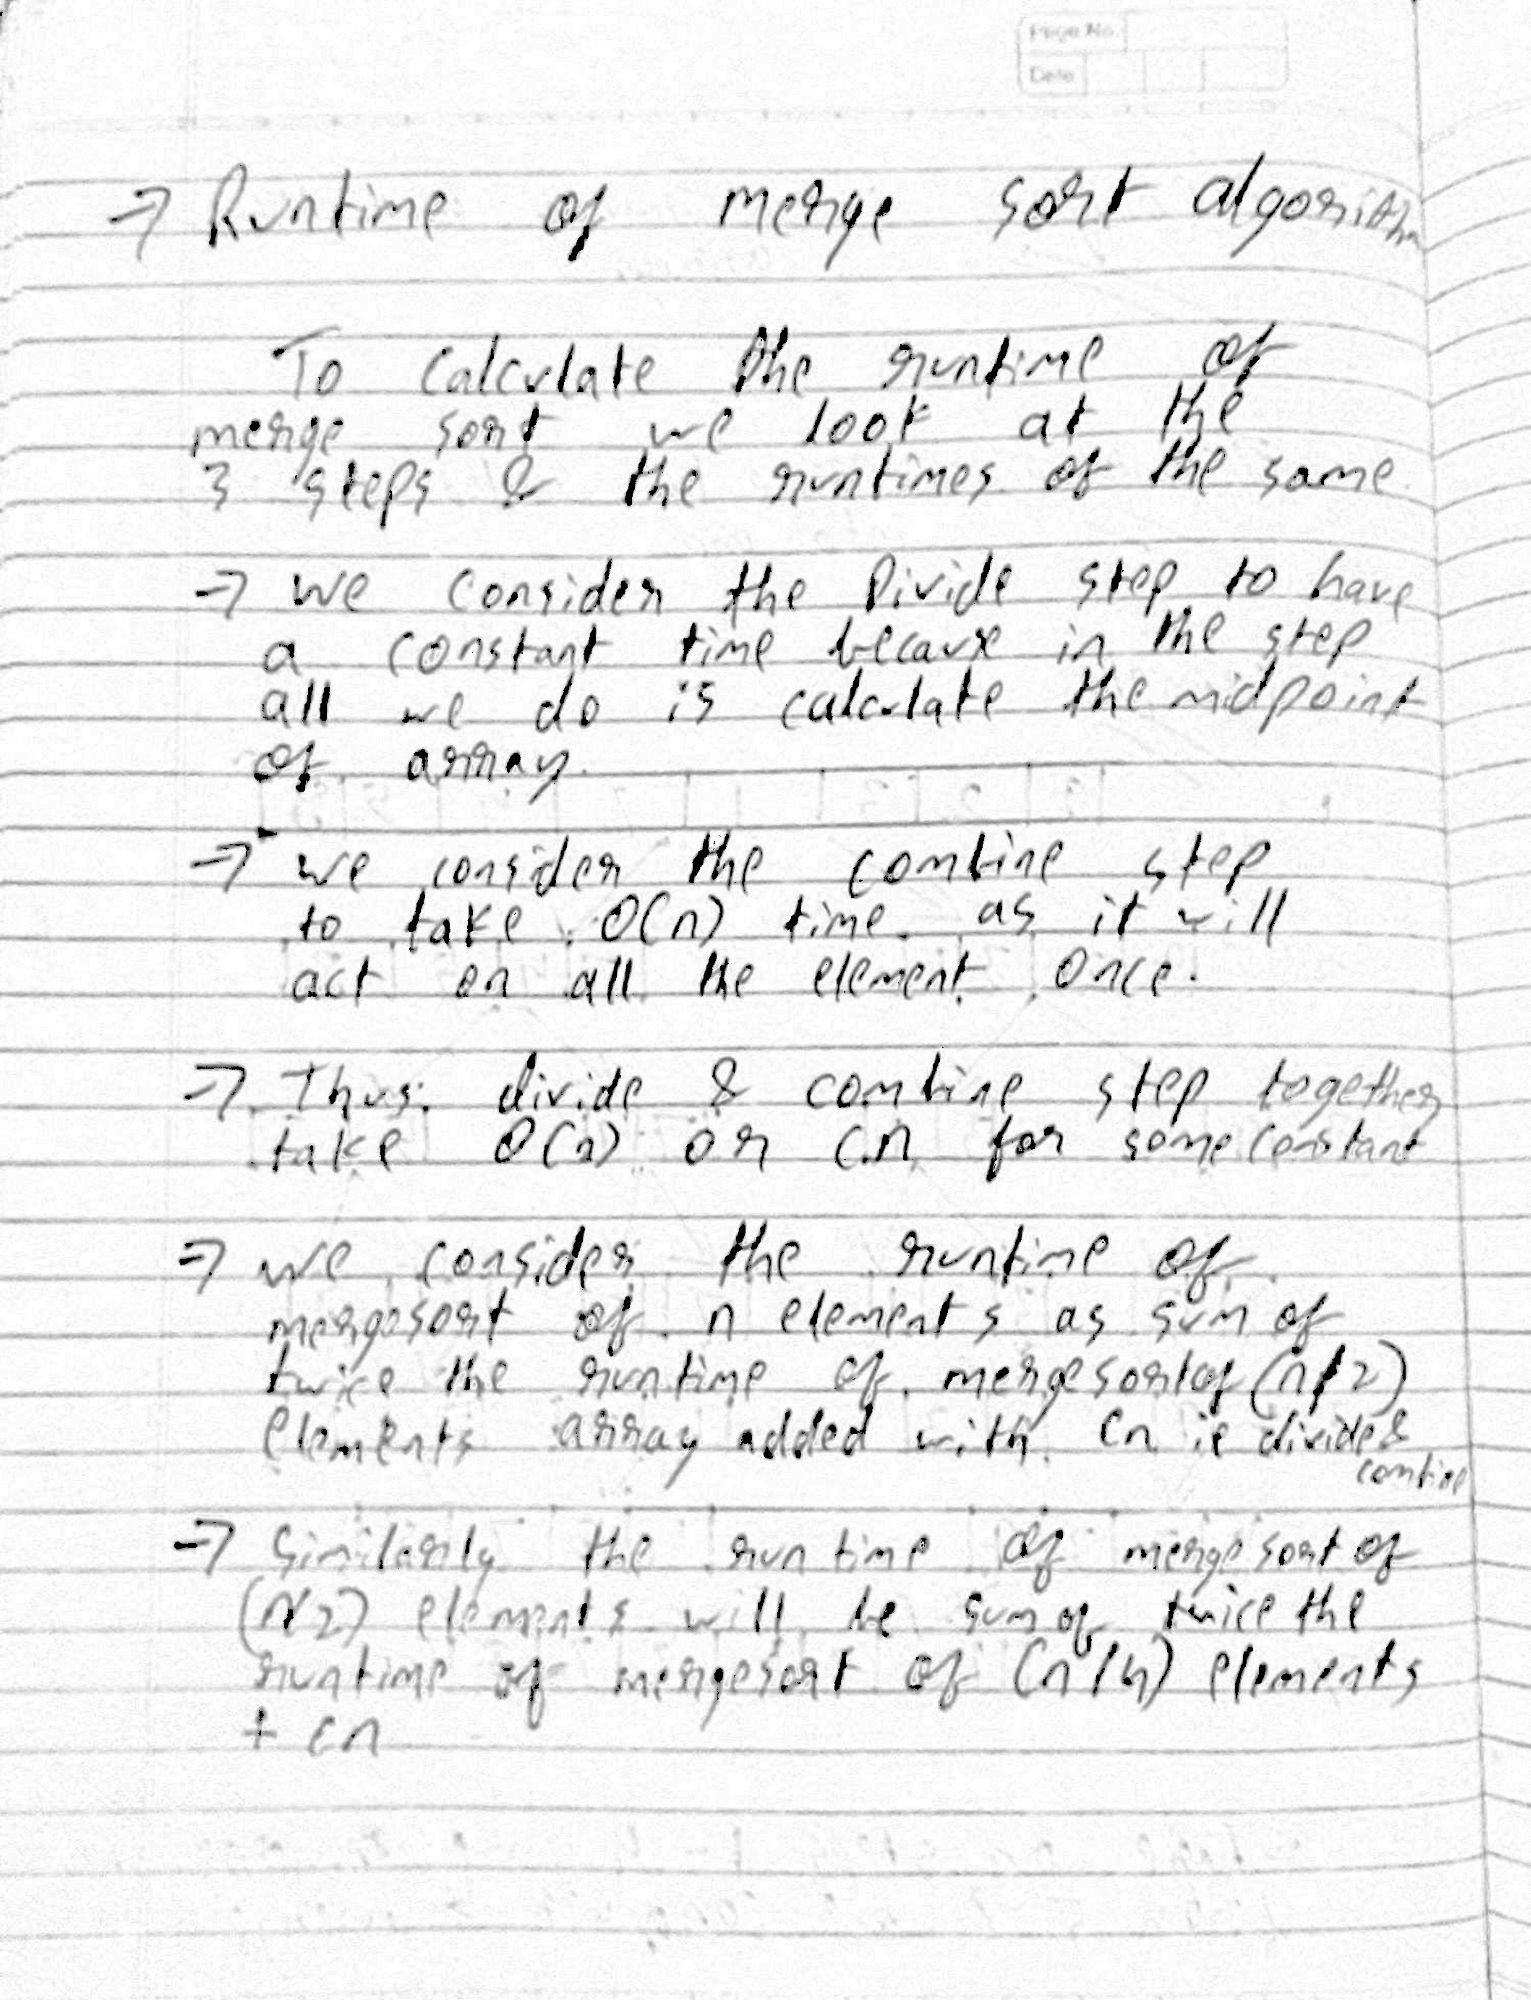 Page No.
Date
→ Runtime of merge sort algorithm
To calculate the runtime of
merge sort we look at the
3 steps & the runtimes of the same
→ we consider the Divide step to have
a constant time because in the step
all we do is calculate the midpoint
of array.
→ we consider the combine step
to take O(n) time as it will
act on all the element once.
→ Thus divide & combine step together
take O(n) or c.n for some constant
→ we consider the runtime of
mergesort of n elements as sum of
twice the runtime of mergesort of (n/2)
elements array added with cn ie divide &
combine
→ Similarly the runtime of mergesort of
(n/2) elements will be sum of twice the
runtime of mergesort of (n/4) elements
+ cn